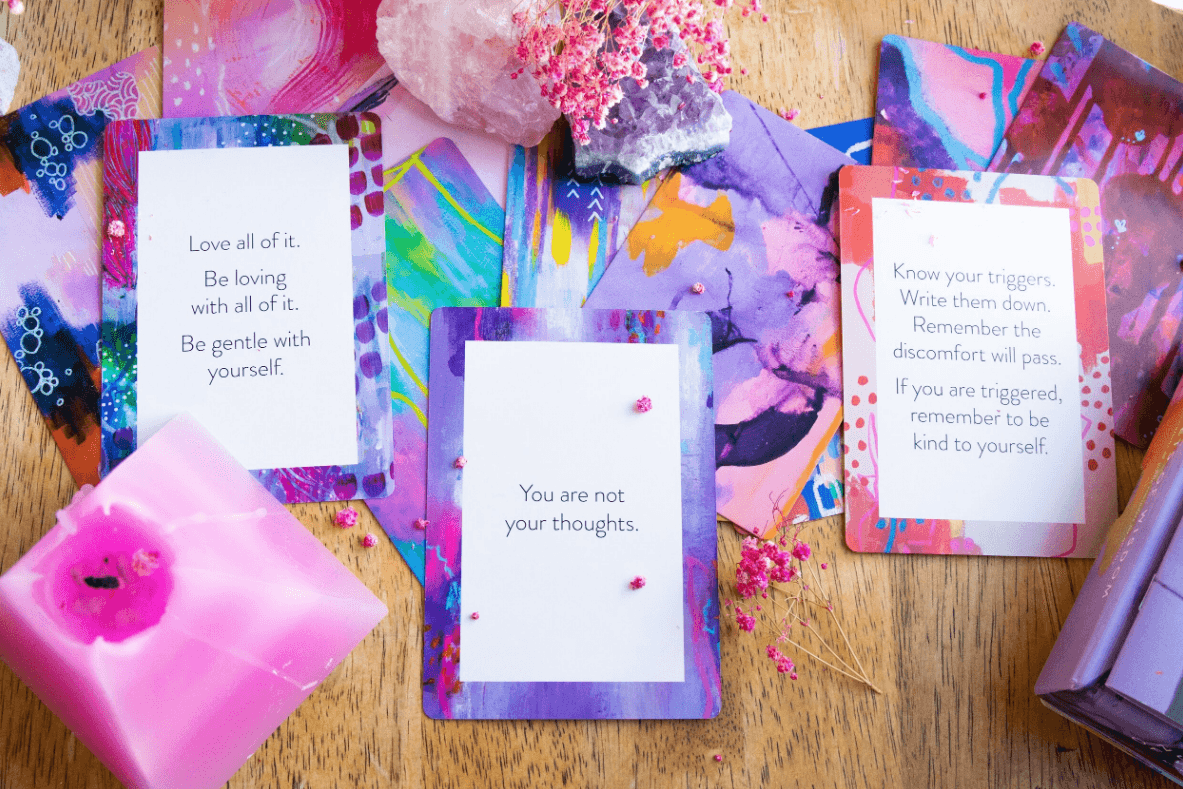 Love all of it.
Be loving
with all of it.
Be gentle with
yourself.
You are not
your thoughts.
Know your triggers.
Write them down.
Remember the
discomfort will pass.
If you are triggered,
remember to be
kind to yourself.